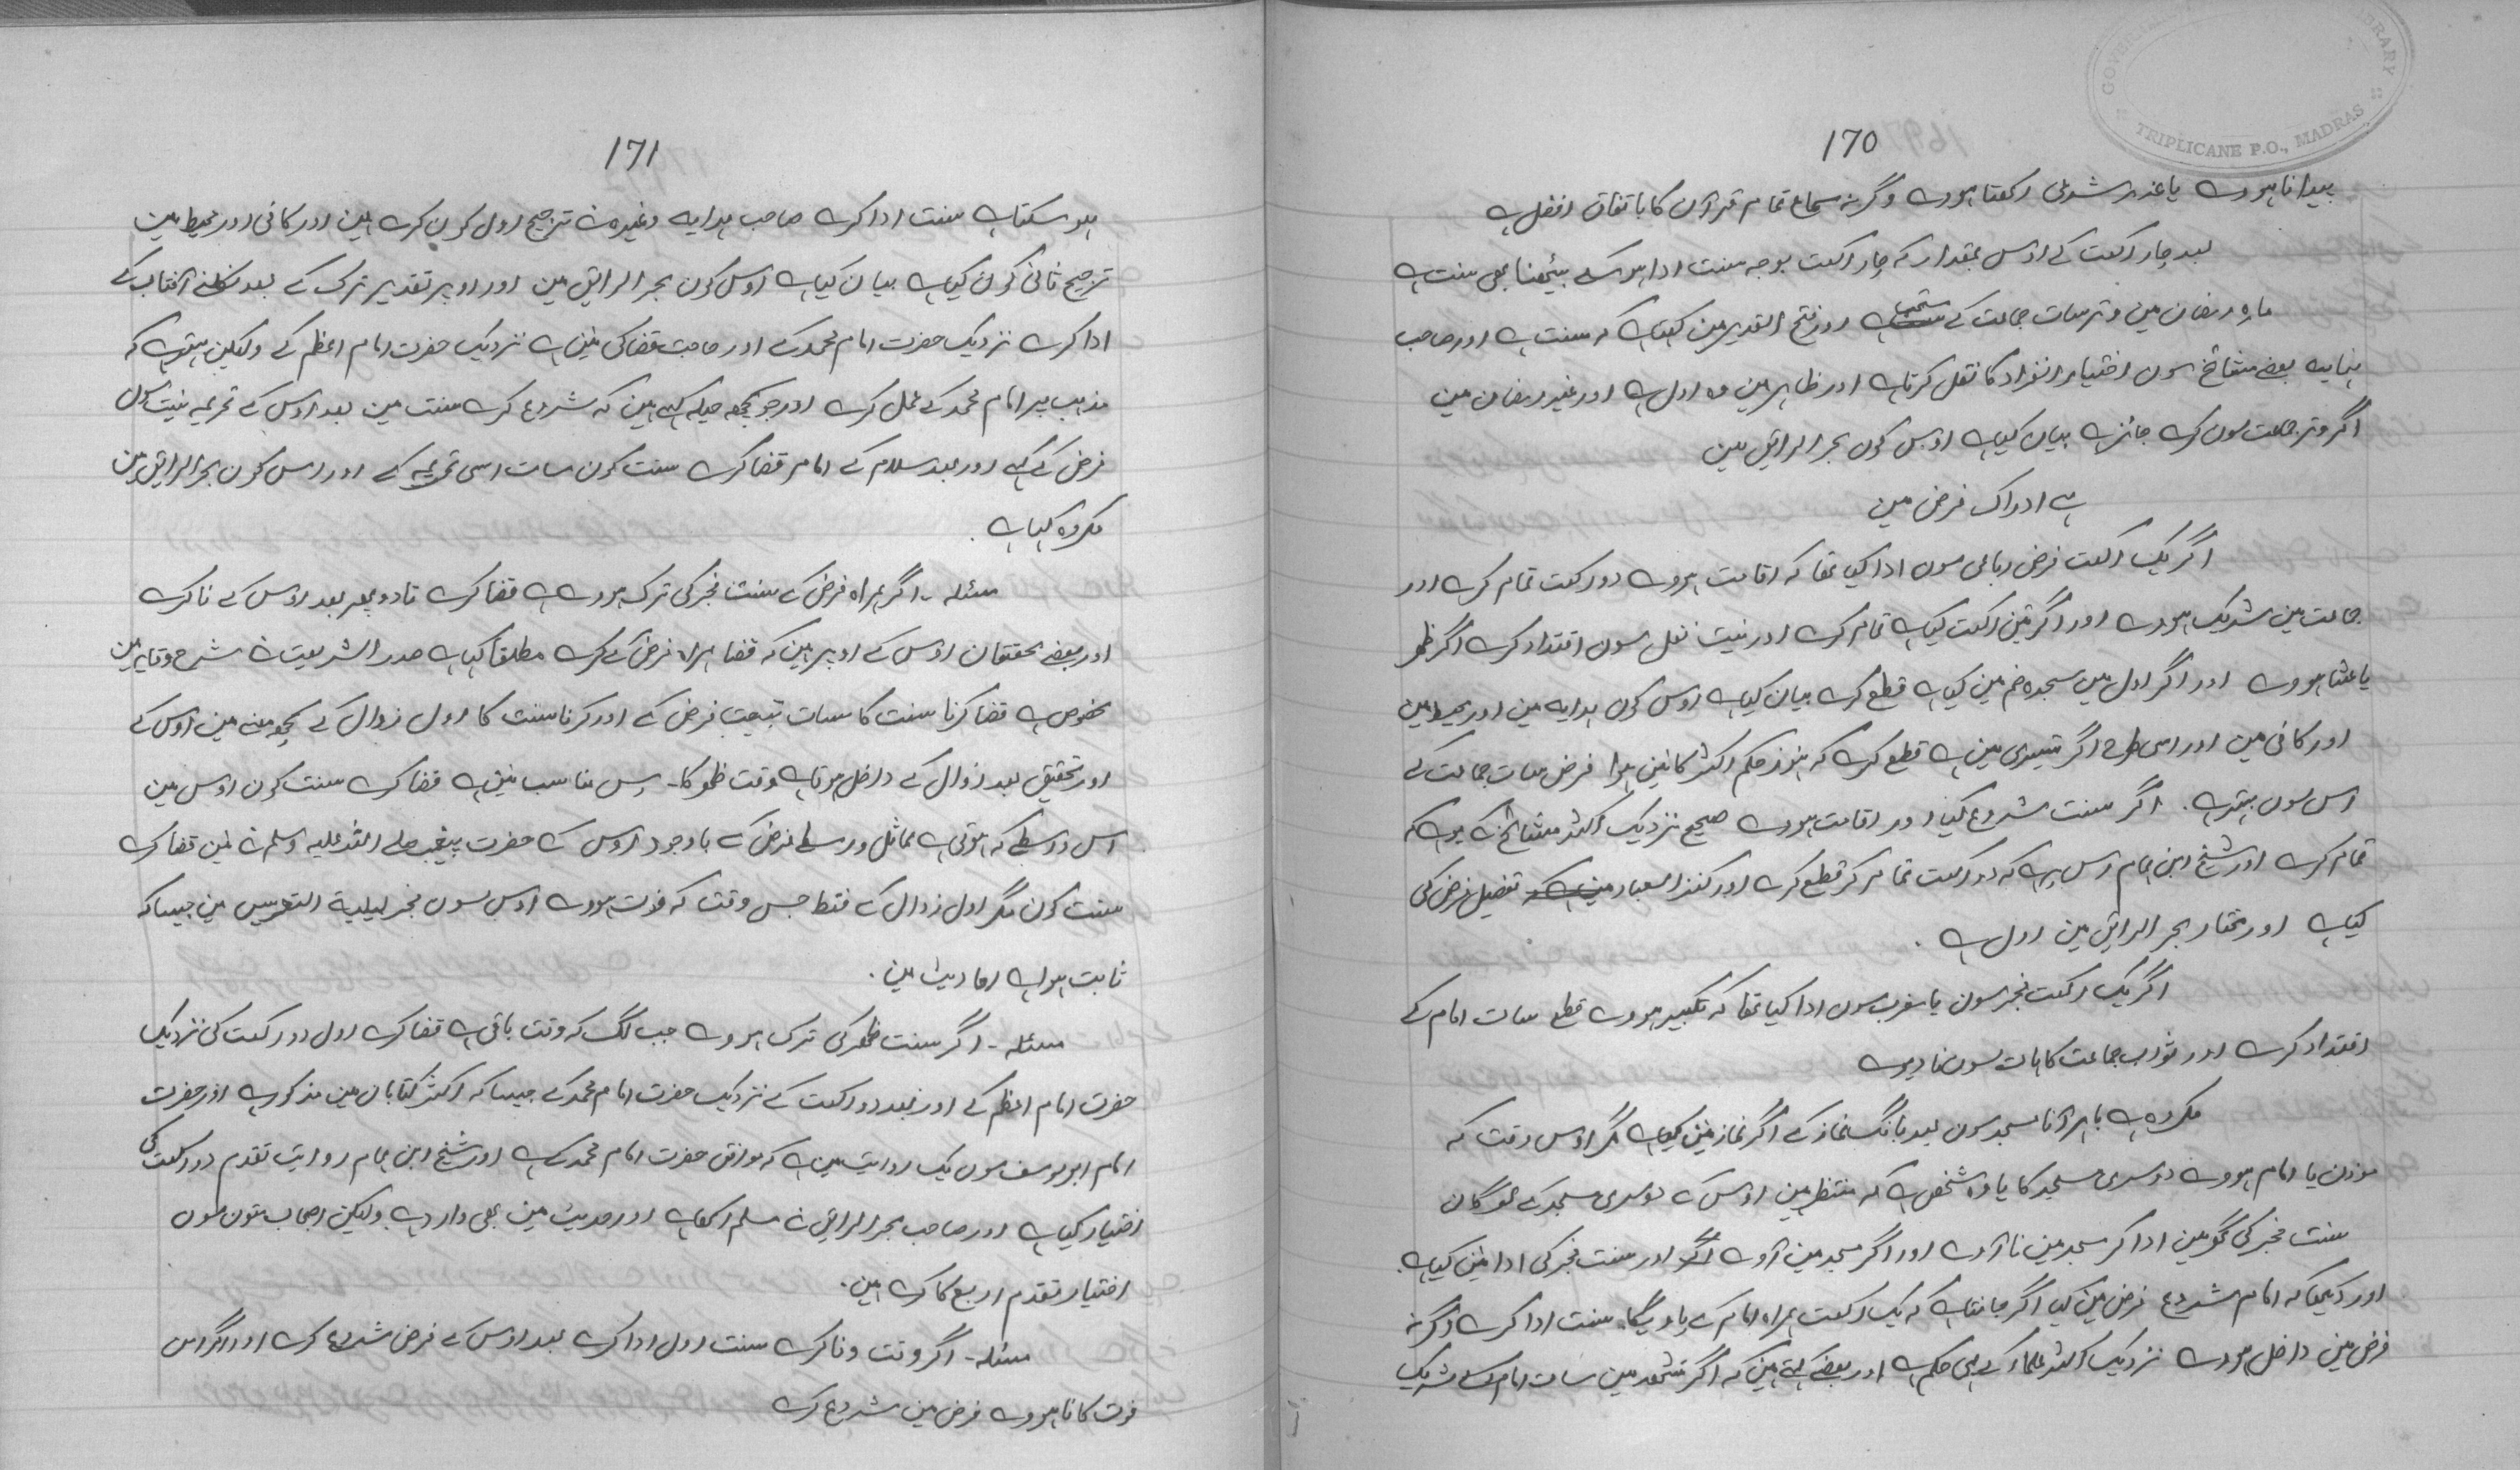 170
پیدا نا ہووے یا عذر شرعی رکھتا ہووے وگرنہ سماع تمام قرآن کا باتفاق افضل ہے
بعد چار رکعت کے اوس بمقدار کہ چار رکعت بوجہ سنت ادا ہو سکے بیٹھنا بھی سنت ہے
ماہ رمضان مین وتر سات جماعت کے مستحب ہے اور فتح القدیر مین کہتا ہے کہ سنت ہے اور صاحب
ہدایہ بعضے مشائخ سون اختیار انفراد کا نقل کرتا ہے اور ظاہر مین وہ اول ہے اور غیر رمضان مین
اگر وتر جماعت سون کرے جائز ہے بیان کیا ہے اوس کون بحر الرائق مین
ہے ادراک فرض مین
اگر یک رکعت فرض رباعی سون ادا کیا تھا کہ اقامت ہووے دو رکعت تمام کرے اور
جماعت مین شریک ہووے اور اگر تین رکعت کیا ہے تمام کرے اور نیت نفل سون اقتدا کرے اگر ظہر
یا عشا ہووے اور اگر اول مین سجدہ ضم مین کیا ہے قطع کرے بیان کیا ہے اوس کون ہدایہ مین اور محیط مین
اور کافی مین اور اسی طرح اگر تیسری مین ہے قطع کرے کہ ہنوز حکم اکثر کا نین ہوا فرض سات جماعت کے
اس سون بہتر ہے۔ اگر سنت شروع کیا اور اقامت ہووے صحیح نزدیک اکثر مشائخ کے یو ہے کہ
تمام کرے اور شیخ ابن ہمام اس پر ہے کہ دو رکعت تمام کر قطع کرے اور کنز العباد تفصیل فرض کی
کیا ہے اور مختار بحر الرائق مین اول ہے۔
اگر یک رکعت فجر سون یا مغرب سون ادا کیا تھا کہ تکبیر ہووے قطع سات امام کے
اقتدا کرے اور ثواب جماعت کا ہات سون نا دیوے
مکروہ ہے باہر آنا مسجد سون بعد بانگ نماز کے اگر نماز نین کیا ہے مگر اوس وقت کہ
موذن یا امام ہووے دوسری مسجد کا یا وہ شخص ہے کہ منتظر ہین اوس کے دوسری مسجد کے لوگان
سنت فجر کی گھر مین ادا کر مسجد مین نا آوے اور اگر مسجد مین آوے اور سنت فجر کی ادا نین کیا ہے۔
اور دیکھا کہ امام شروع فرض مین کیا اگر جانتا ہے کہ یک رکعت ہمراہ امام کے پاویگا۔ سنت ادا کرے وگرنہ
فرض مین داخل ہووے نزدیک اکثر علماء کے یہی حکم ہے اور بعضے کہتے ہین کہ اگر تشہد مین سات امام کے شریک
171
ہو سکتا ہے سنت ادا کرے صاحب ہدایہ وغیرہ نے ترجیح اول کون کرے ہین اور کافی اور محیط مین
ترجیح ثانی کون کیا ہے بیان کیا ہے اوس کون بحر الرائق مین اور اوپر تقدیر ترک کے بعد نکلنے آفتاب کے
ادا کرے نزدیک حضرت امام محمد کے اور حاجت قضا کی نین ہے نزدیک حضرت امام اعظم کے ولیکن بہتر ہے کہ
مذہب پر امام محمد کے عمل کرے اور جو کچھ حیلہ کہے ہین کہ شروع کرے سنت مین بعد اوس کے تحریمہ نیت سون
فرض کے کہے اور بعد سلام کے امام قضا کرے سنت کون سات اسی تحریمہ کے اور اس کون بحر الرائق مین
مکروہ کہا ہے۔
مسئلہ - اگر ہمراہ فرض کے سنت فجر کی ترک ہووے قضا کرے تا دوپہر بعد اوس کے نا کرے
اور بعضے محققان اوس کے اوپر ہین کہ قضا ہمراہ فرض کے کرے مطلقاً کیا ہے صدر الشریعت نے شرح وقایہ مین
مخصوص ہے قضا کرنا سنت کا سات تبعیت فرض کے اور کرنا سنت کا اول زوال کے کچھ منع مین اوس کے
اور تحقیق بعد زوال کے داخل ہوتا ہے وقت ظہر کا۔ پس مناسب نین ہے قضا کرے سنت کون اوس مین
اس واسطے کہ ہوتی ہے مماثل واسطے فرض کے باوجود اوس کے حضرت پیغمبر صلی اللہ علیہ وسلم نے نین قضا کرے
سنت کون مگر اول زوال کے فقط جس وقت کہ فوت ہووے اوس سون فجر لیلیۃ التعریس مین جیسا کہ
ثابت ہوا ہے احادیث مین۔
مسئلہ - اگر سنت ظہر کی ترک ہووے جب لگ کہ وقت باقی ہے قضا کرے اول دو رکعت کی نزدیک
حضرت امام اعظم کے اور بعد دو رکعت کے نزدیک حضرت امام محمد کے جیسا کہ اکثر کتابان مین مذکور ہے اور حضرت
امام ابو یوسف سون یک روایت مین ہے کہ موافق حضرت امام محمد کے ہے اور شیخ ابن ہمام روایت تقدم دو رکعت کی
اختیار کیا ہے اور صاحب بحر الرائق نے مسلم رکھا ہے اور حدیث مین بھی وارد ہے ولیکن اصحاب متون سون
اختیار تقدم اربع کا کرے ہین۔
مسئلہ - اگر وقت وفا کرے سنت اول ادا کرے بعد اوس کے فرض شروع کرے اور اگر اس
فوت کا نا ہووے فرض مین شروع کرے
TRIPLICANE P.O., MADRAS